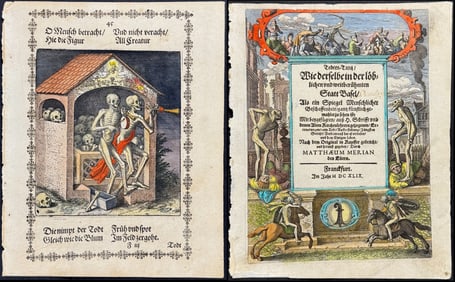 45
O Mensch betracht/ Und nicht veracht/
Hie die Figur All Creatur
Die nimpt der Todt Früh und spot
Gleich wie die Blum Im Feld zergoht.
F iij Todt
Todten-Tantz/
Wie derselbe in der löb-
lichen und weitberühmten
Statt Basel/
Als ein Spiegel Menschlicher
Beschaffenheit/ gantz künstlich ge-
mahlet zu sehen ist.
Nach dem Original in Kupffer gebracht/
MATTHÆUM MERIAN
den Eltern.
Franckfurt/
Im Jahr M DC XLIX.